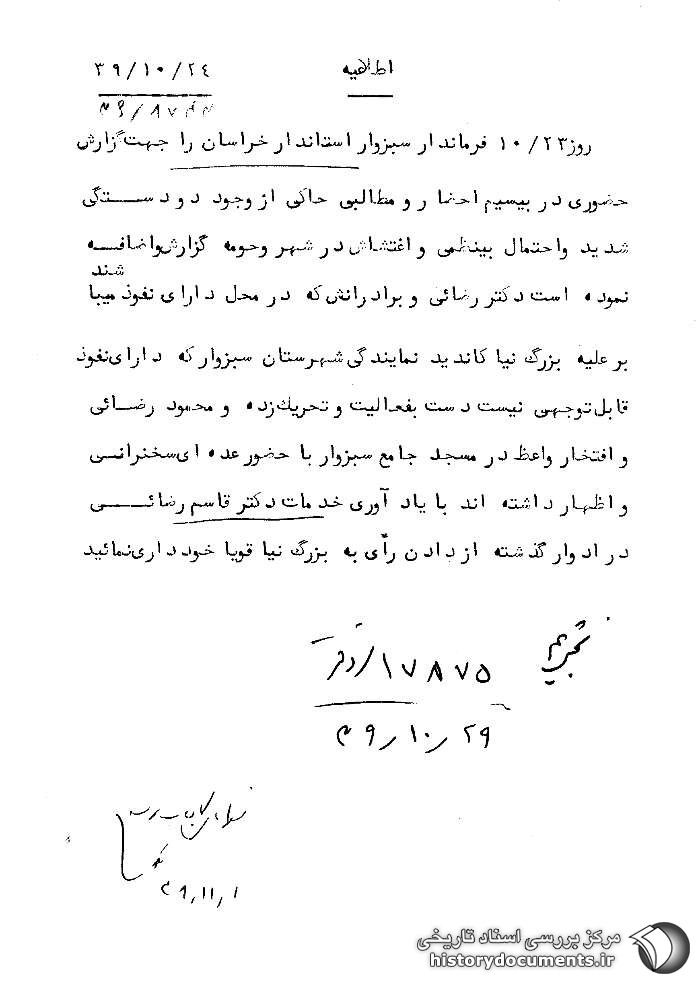 اطلاعیه
۳۹/۱۰/۲٤
روز ۱۰/۲۳ فرماندار سبزوار استاندار خراسان را جهت گزارش
حضوری در بیسیم احضار و مطالبی حاکی از وجود دودستگی
شدید واحتمال بینظمی و اغتشاش در شهر وحومه گزارش واضافه
نموده است دکتر رضائی و برادرانش که در محل دارای نفوذ میباشند
بر علیه بزرگ نیا کاندید نمایندگی شهرستان سبزوار که دارای نفوذ
قابل توجهی نیست دست بفعالیت و تحریک زده و محمود رضائی
و افتخار واعظ در مسجد جامع سبزوار با حضور عده ای سخنرانی
و اظهار داشته اند با یاد آوری خدمات دکتر قاسم رضائی
در ادوار گذشته از دادن رأی به بزرگ نیا قویا خودداری نمائید
۱۷۸۷۵/دفتر
۳۹/۱۰/۲۹
۳۹/۱۱/۱
مرکز بررسی اسناد تاریخی
historydocuments.ir